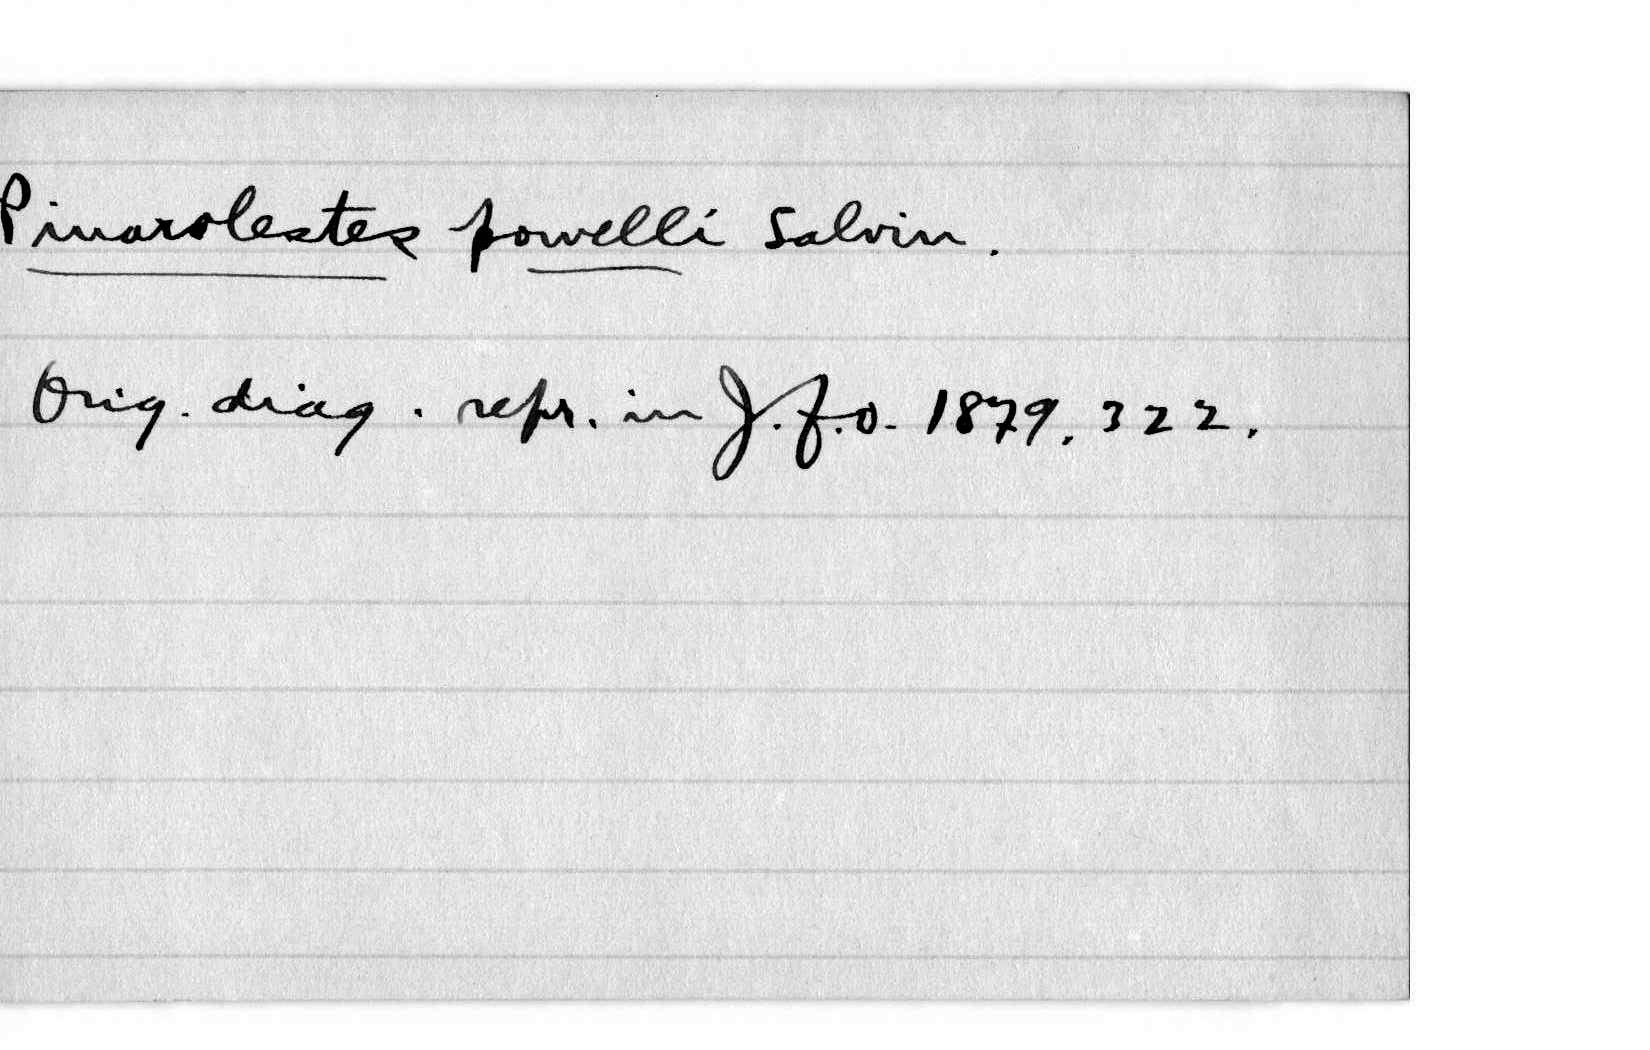 Pinarolestes powelli Salvin.
Orig. diag. repr. in J.f.O. 1879. 322.